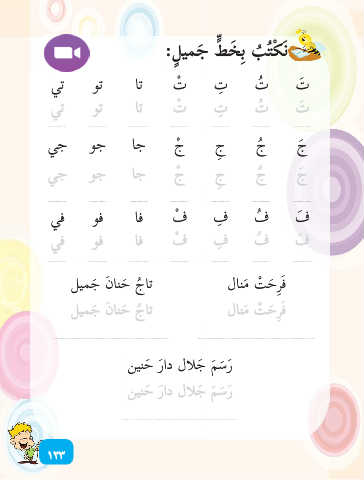 نَكْتُبُ بِخَطٍّ جَميلٍ:
تَ تُ تِ تْ تا تو تي
تَ تُ تِ تْ تا تو تي
جَ جُ جِ جْ جا جو جي
جَ جُ جِ جْ جا جو جي
فَ فُ فِ فْ فا فو في
فَ فُ فِ فْ فا فو في
فَرِحَتْ مَنال تاجُ حَنانَ جَميل
فَرِحَتْ مَنال تاجُ حَنانَ جَميل
رَسَمَ جَلال دارَ حَنين
رَسَمَ جَلال دارَ حَنين
١٣٣